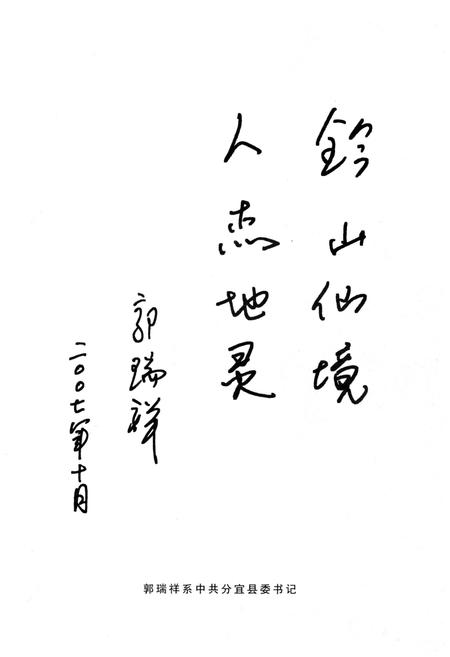 鈐山仙境
人杰地灵
郭瑞祥
二〇〇七年十月
郭瑞祥系中共分宜县委书记